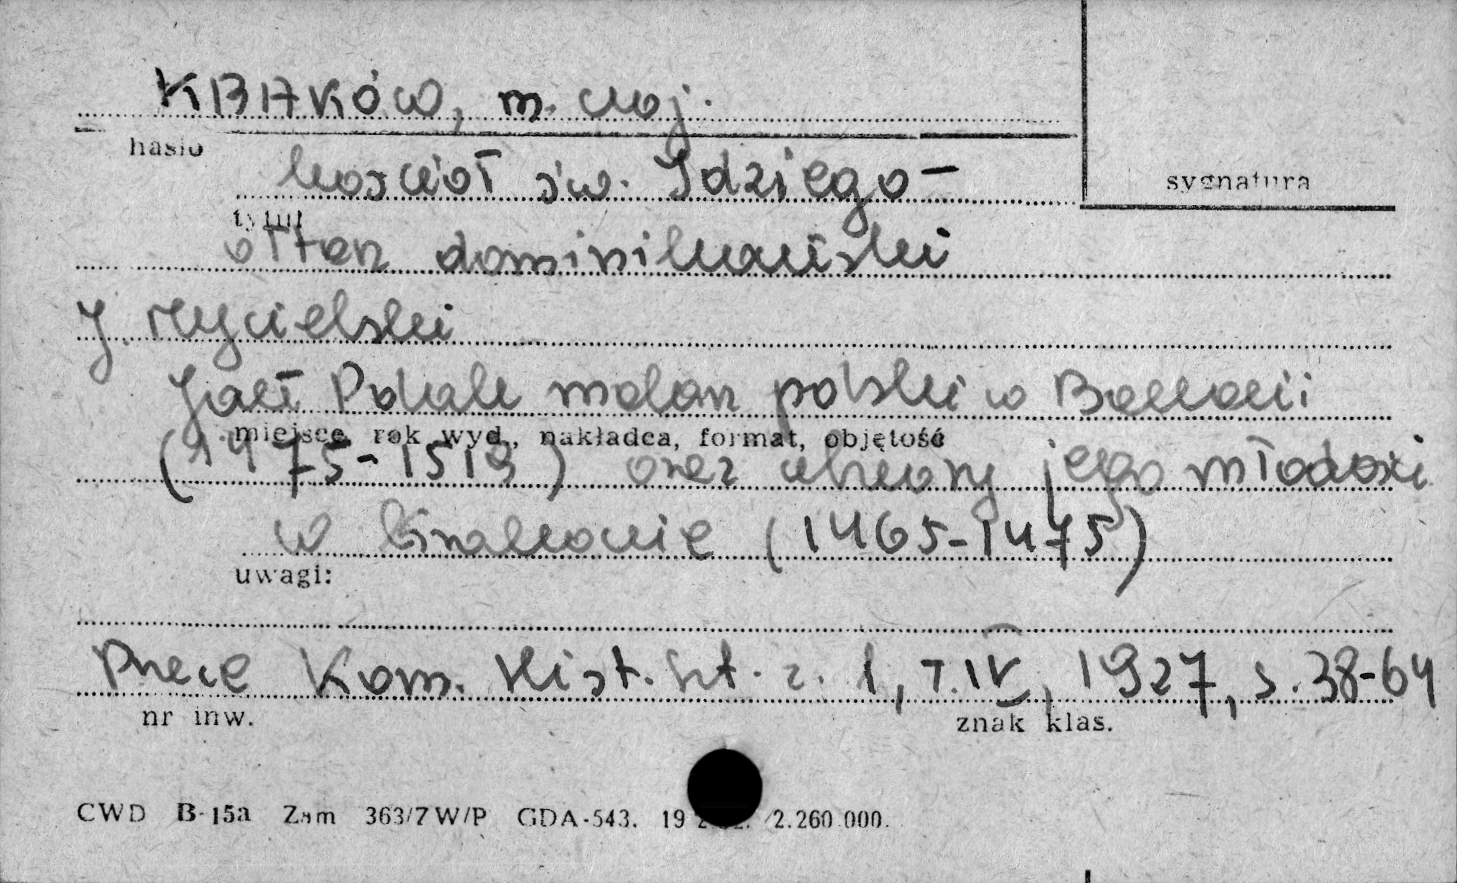 KRAKÓW, m. woj.
hasło
kościół św. Idziego -
sygnatura
tytuł
ołtarz dominikański
J. Mycielski
Jan Polak malarz polski w Bawarii
miejsce, rok wyd., nakładca, format, objętość
(1475-1519) oraz utwory jego młodości
w Krakowie (1465-1475)
uwagi:
Prace Kom. Hist. Szt. z. 1, T. IV, 1927, s. 38-64
nr inw.
znak klas.
CWD B-15a Zam 363/7 W/P GDA-543. 19 2.260.000.